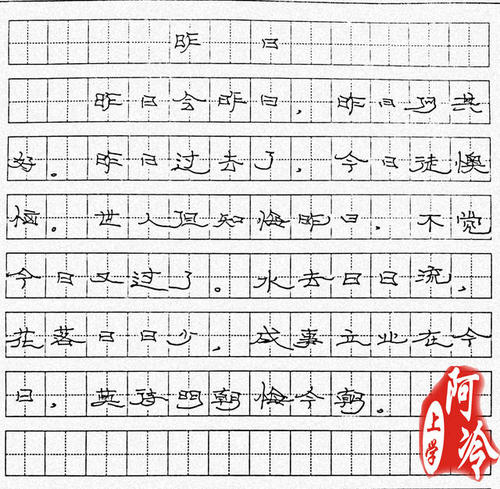 昨 日
昨日兮昨日，昨日何其
好。昨日过去了，今日徒懊
恼。世人但知悔昨日，不觉
今日又过了。水去日日流，
花落日日少，成事立业在今
日，莫待明朝悔今朝。
阿冷
上学